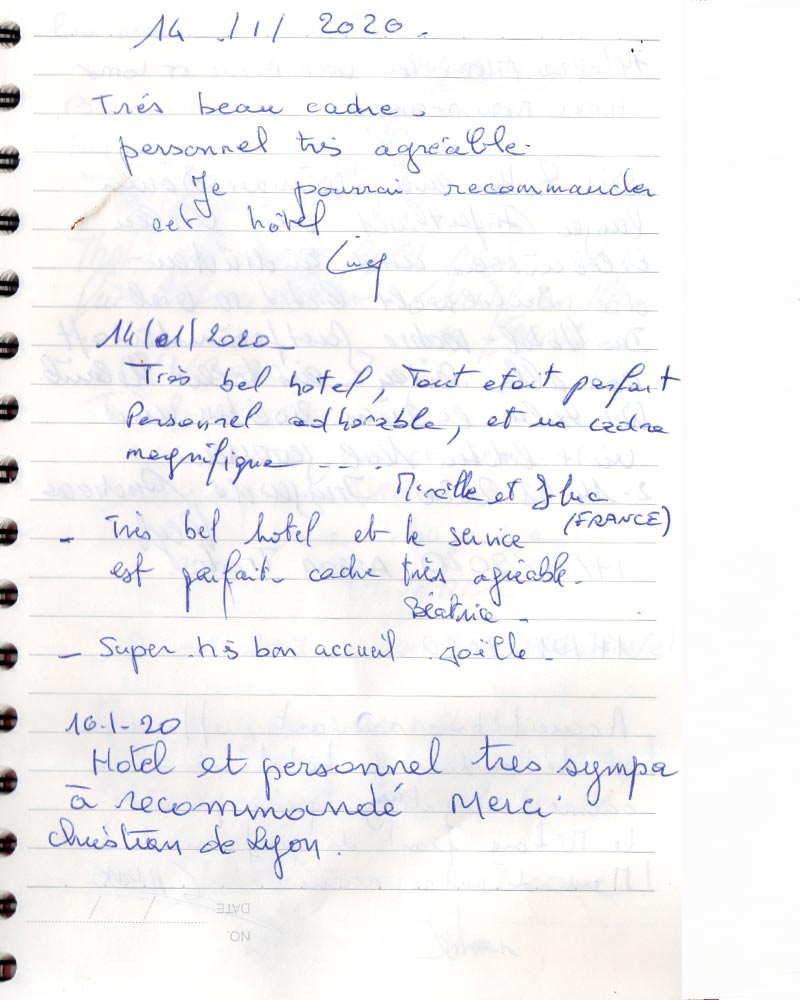 14 /1/ 2020.
Très beau cadre.
personnel très agréable.
Je pourrai recommander
cet hôtel
14/01/2020
Très bel hotel, Tout etait parfait
Personnel adhorable, et un cadre
magnifique ----
Mireille et J-Luc
(FRANCE)
- Très bel hotel et le service
est parfait - cadre très agréable.
Béatrice -
- Super très bon accueil Joëlle -
16.1-20
Hotel et personnel tres sympa
à recommandé Merci
Christian de Lyon.
DATE
NO.